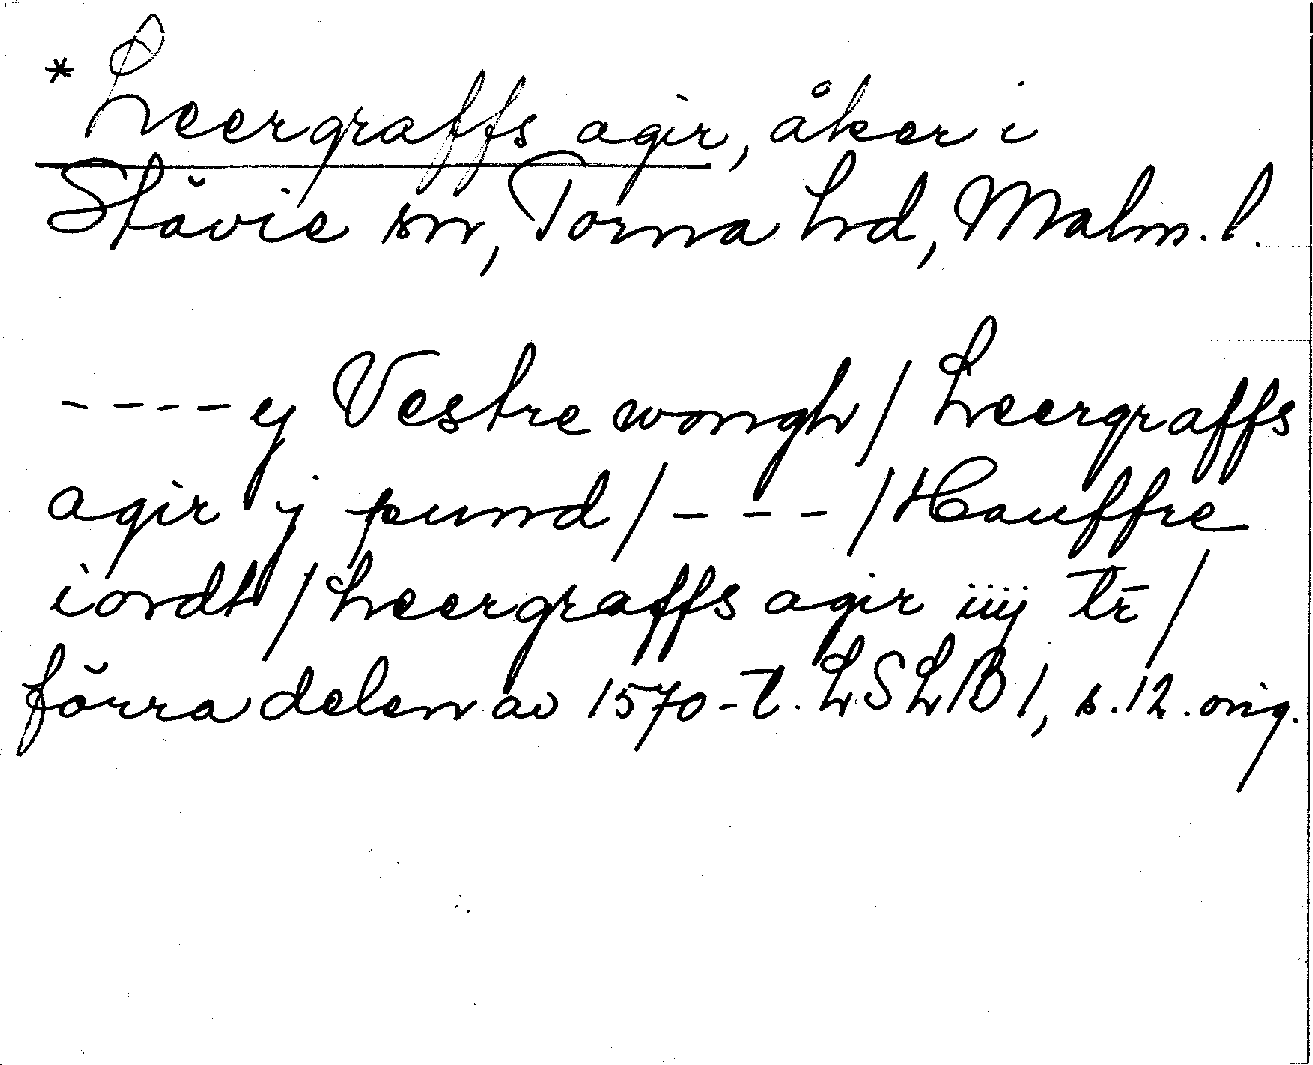 *Leergraffs agir, åker i
Stävie sn, Torna hd, Malm. l.
----ej Vestre wongh/Leergraffs
agir j pund/---/Hauffre
iordt/Leergraffs agir iiij tr̄/
förra delen av 1570-t. LSLB 1, s.12. orig.